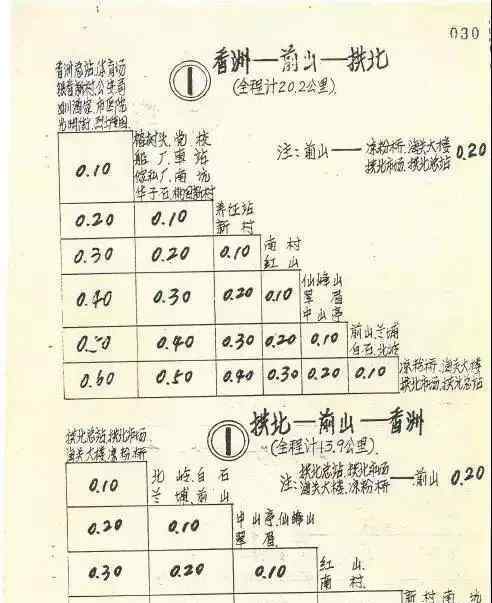 030
香洲—前山—拱北
(全程计20.2公里)
①
香洲总站.体育场
银香新村.公安局
湾仔
光明街.烈士陵园
0.10
榕树头.党校
船厂.车站
傢私厂.南坑
华子石.桃园新村
注:前山——凉粉桥.海关大楼
拱北市场.拱北总站 0.20
0.20 0.10
养征站
新村
0.30 0.20 0.10
南村
红山
0.40 0.30 0.20 0.10
仙峰山
翠眉
中山亭
0.50 0.40 0.30 0.20 0.10
前山.兰埔
白石.北岭
0.60 0.50 0.40 0.30 0.20 0.10
凉粉桥.海关大楼
拱北市场.拱北总站
拱北—前山—香洲
①
(全程计13.9公里)
拱北总站.拱北市场
海关大楼.凉粉桥
0.10
北岭.白石
兰埔.前山
注:拱北总站.拱北市场
海关大楼.凉粉桥——前山 0.20
0.20 0.10
中山亭.仙峰山
翠眉
0.30 0.20 0.10
红山
南村
新村 南坑